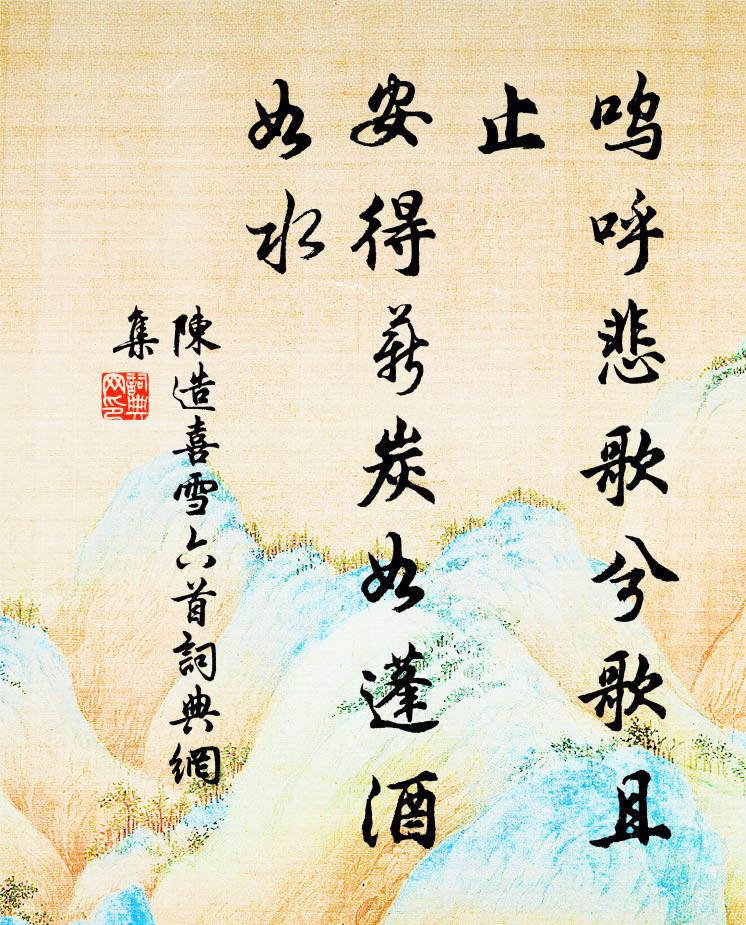 嗚呼悲歌兮歌且
止
安得薪炭如蓬酒
如水
陳造喜雪六首詞典網
集
詞典
网印